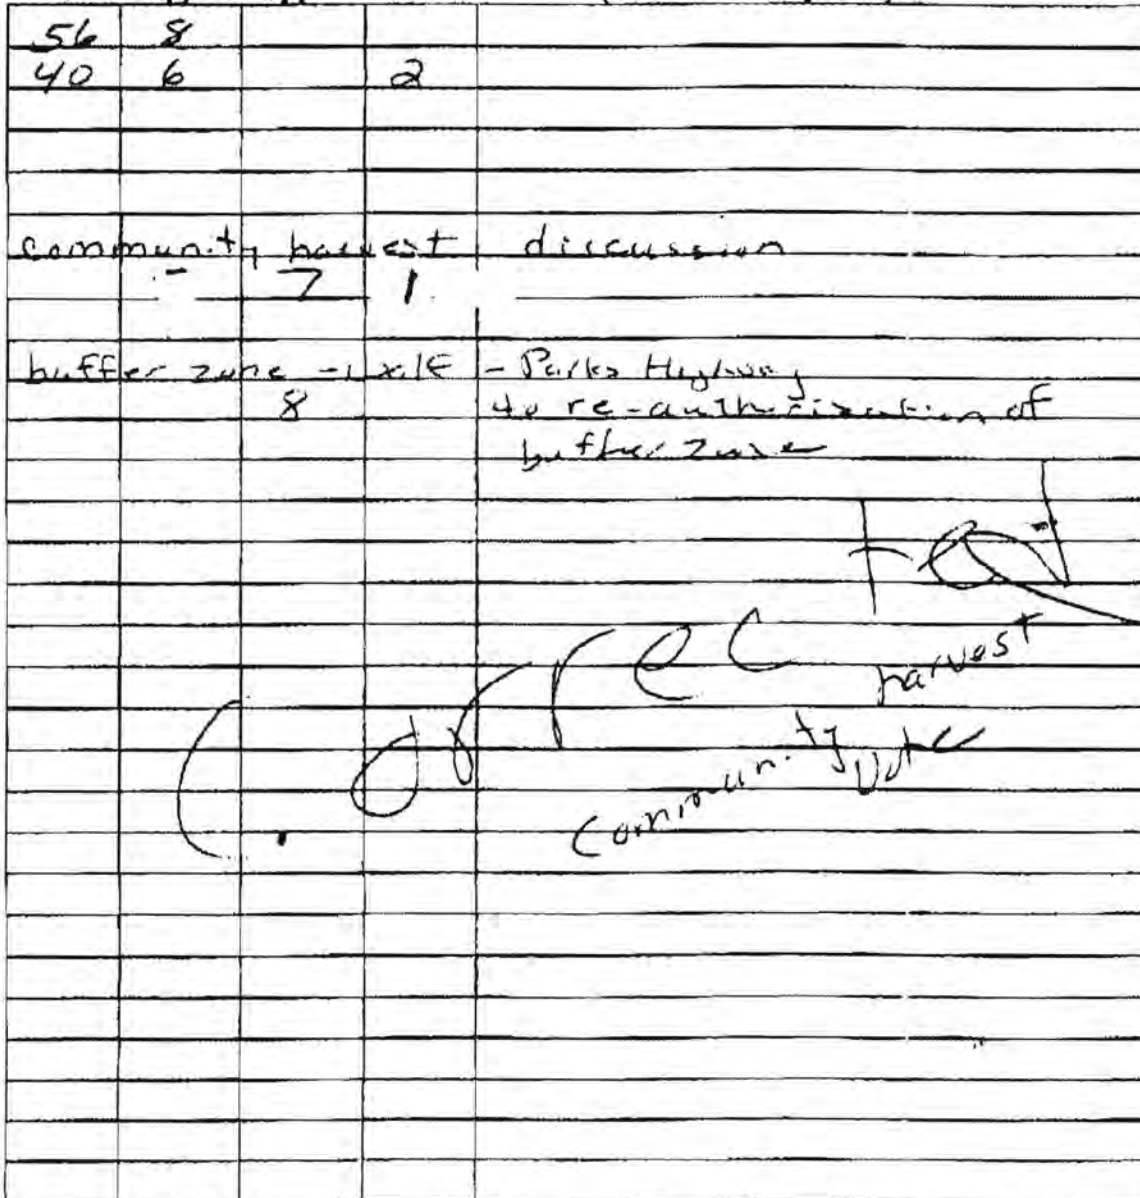 56 8
40 6 2
community harvest discussion
- 7 1
buffer zone - Parks Highway
8 re-authorization of
buffer zone
Corrected
community harvest
vote